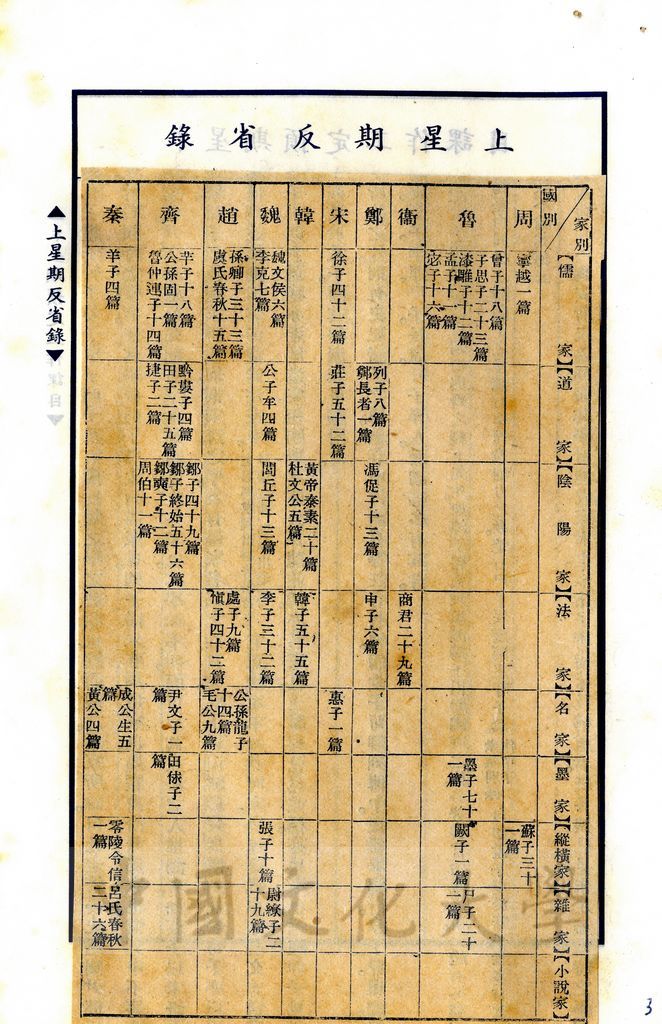 上星期反省錄
▲上星期反省錄▼
家別
國別
周
魯
衞
鄭
宋
韓
魏
趙
齊
秦
【儒家】
甯越一篇
曾子十八篇
子思二十三篇
漆雕子十二篇
孟子十一篇
宓子十六篇
徐子四十二篇
魏文侯六篇
李克七篇
孫卿子三十三篇
虞氏春秋十五篇
芈子十八篇
公孫固一篇
魯仲連子十四篇
羊子四篇
【道家】
列子八篇
鄭長者一篇
莊子五十二篇
公子牟四篇
黔婁子四篇
田子二十五篇
捷子二篇
【陰陽家】
馮促子十三篇
黃帝泰素二十篇
杜文公五篇
閭丘子十三篇
鄒子四十九篇
鄒子終始五十六篇
鄒奭子十二篇
周伯十一篇
【法家】
商君二十九篇
申子六篇
韓子五十五篇
李子三十二篇
處子九篇
愼子四十二篇
【名家】
惠子一篇
公孫龍子十四篇
毛公九篇
尹文子一篇
成公生五篇
黃公四篇
【墨家】
墨子七十一篇
田俅子二篇
【縱橫家】
蘇子三十一篇
闕子一篇
張子十篇
零陵令信一篇
【雜家】
尸子二十篇
尉繚子二十九篇
呂氏春秋二十六篇
【小說家】
中國文化大學
3